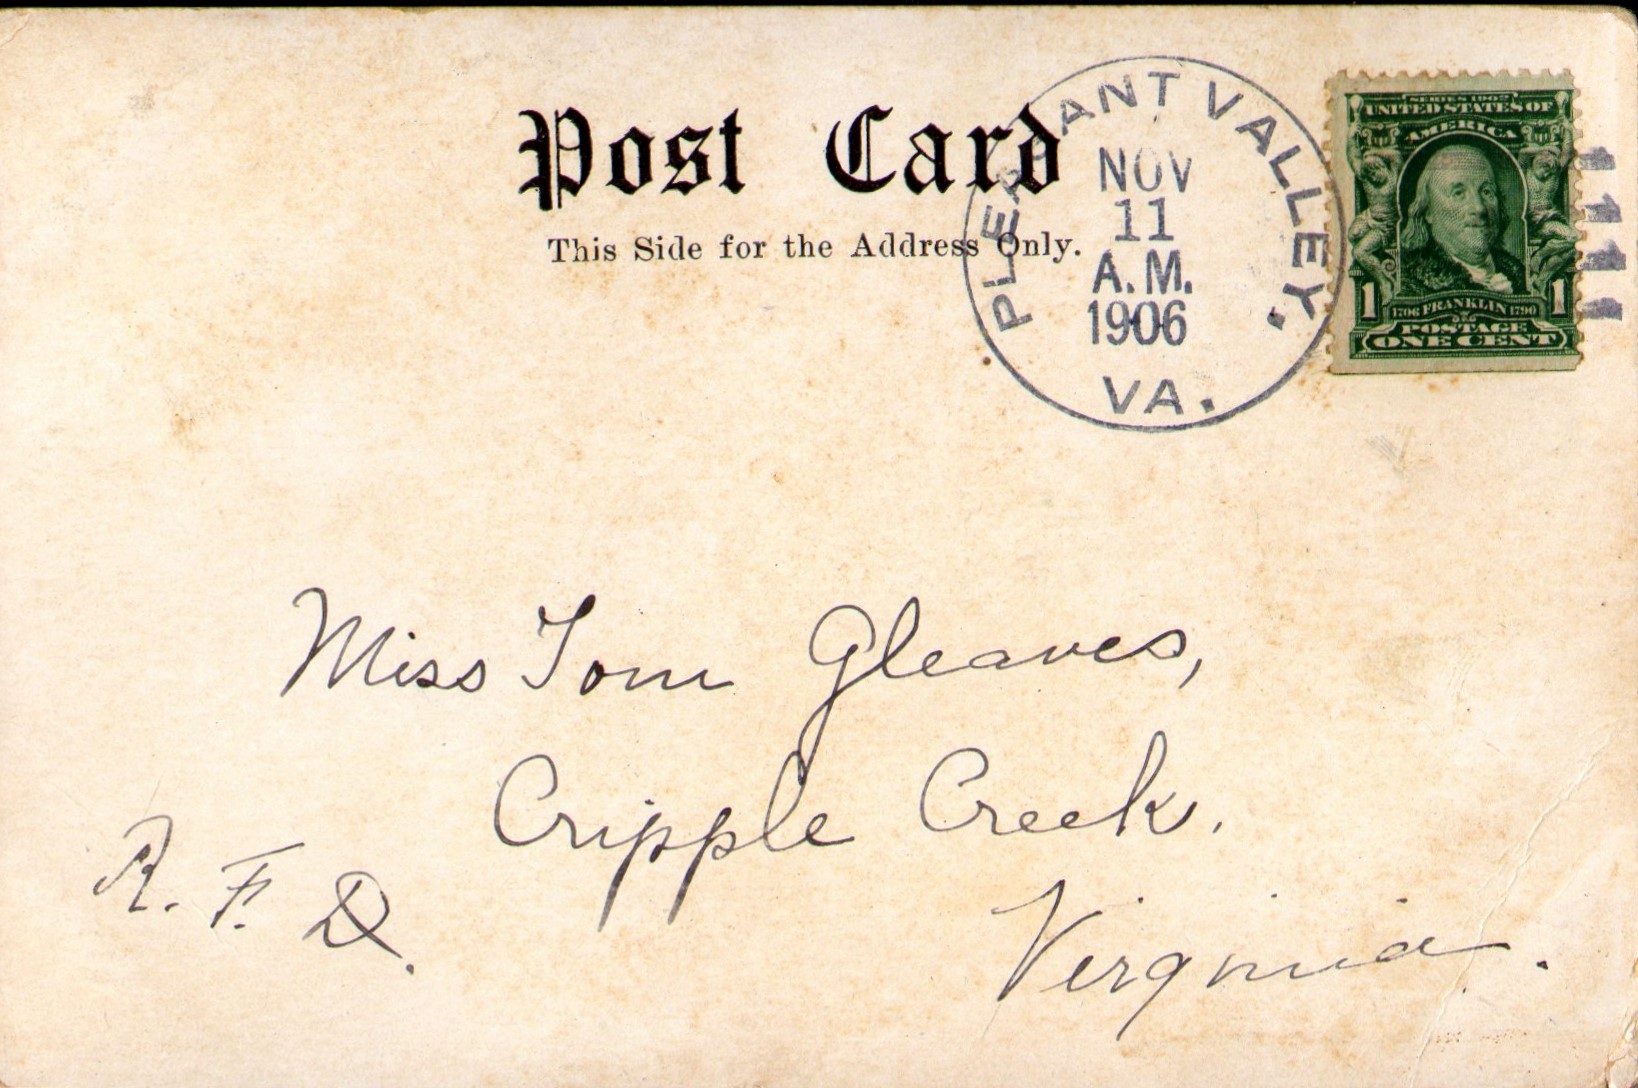 Post Card
This Side for the Address Only.
PLEASANT VALLEY.
NOV
11
A.M.
1906
VA.
SERIES 1902
UNITED STATES OF
AMERICA
1 1706 FRANKLIN 1790 1
POSTAGE
ONE CENT
Miss Tom Gleaves,
Cripple Creek.
R. F. D.
Virginia.